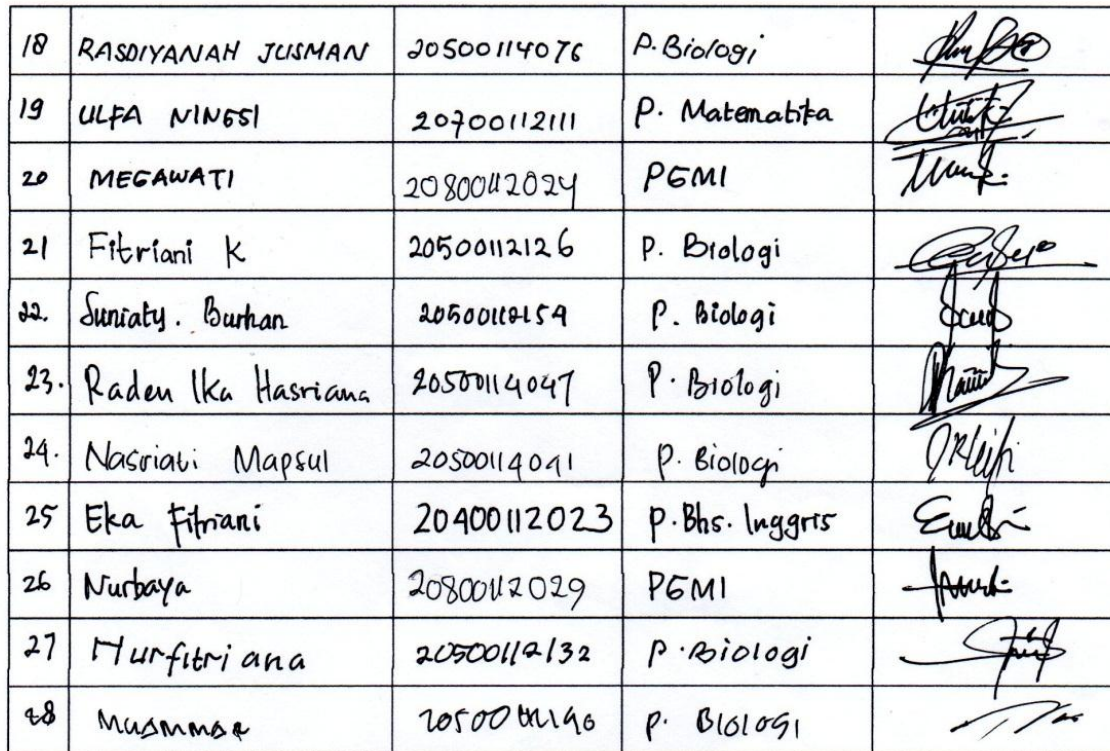 18 RASDIYANAH JUSMAN 20500114076 P. Biologi
19 ULFA NINGSI 20700112111 P. Matematika
20 MEGAWATI 20800112024 PGMI
21 Fitriani K 20500112126 P. Biologi
22. Suniaty. Burhan 20500112159 P. Biologi
23. Raden Ika Hasriana 20500114047 P. Biologi
24. Nasriati Mapsul 20500114041 P. Biologi
25 Eka Fitriani 20400112023 P. Bhs. Inggris
26 Nurbaya 20800112029 PGMI
27 Nurfitri ana 20500112132 P. Biologi
28 MUAMMAR P. BIOLOGI